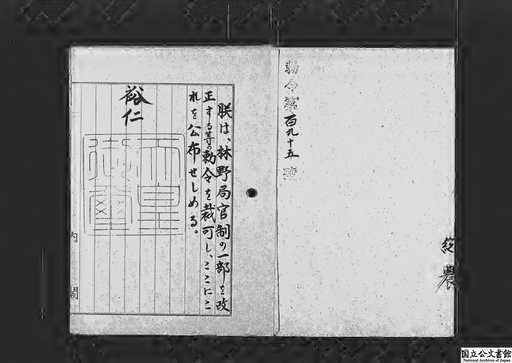 勅令第百九十五号
総農
朕は、林野局官制の一部を改
正する等の勅令を裁可し、ここにこ
れを公布せしめる。
裕仁
天皇御璽
内閣
国立公文書館
National Archives of Japan